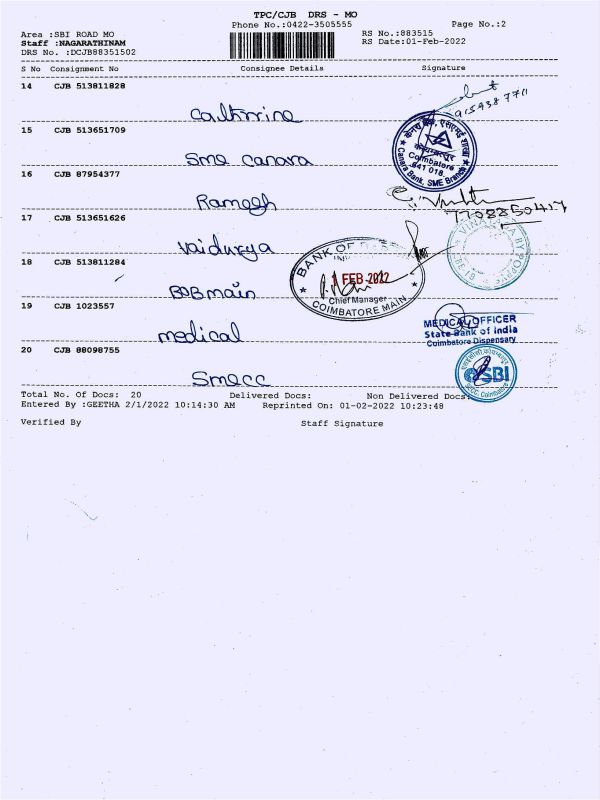 TPC/CJB DRS - MO
Phone No.:0422-3505555
Page No.:2
Area :SBI ROAD MO
RS No.:883515
Staff :NAGARATHINAM
RS Date:01-Feb-2022
DRS No. :DCJB88351502
S No Consignment No Consignee Details Signature
14 CJB 513811828
Catherine
15 CJB 513651709
Sme Canara
Coimbatore
641 018.
Canara Bank, SME Branch
16 CJB 87954377
Ramegh
7708850417
17 CJB 513651626
Vaidurya
18 CJB 513811284
BOB main
BANK OF
1 FEB 2022
Chief Manager
COIMBATORE MAIN
19 CJB 1023557
medical
MEDICAL OFFICER
State Bank of India
Coimbatore Dispensary
20 CJB 88098755
Smecc
SBI
Total No. Of Docs: 20 Delivered Docs: Non Delivered Docs:
Entered By :GEETHA 2/1/2022 10:14:30 AM Reprinted On: 01-02-2022 10:23:48
Verified By Staff Signature